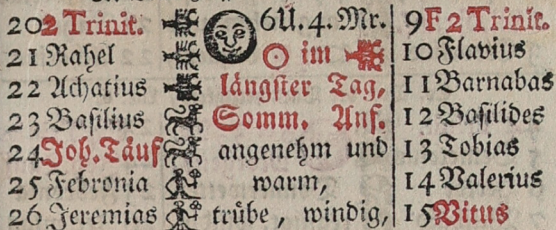 202 Trinit. 6U. 4. Mr. 9F2 Trinit.
21 Rahel ☉ im 10 Flavius
22 Achatius längster Tag, 11 Barnabas
23 Basilius Somm. Anf. 12 Basilides
24 Joh. Täuf angenehm und 13 Tobias
25 Febronia warm, 14 Valerius
26 Jeremias trübe, windig, 15 Vitus